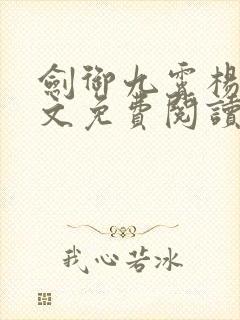 劍御九霄楊
文免費閱讀
我心若冰